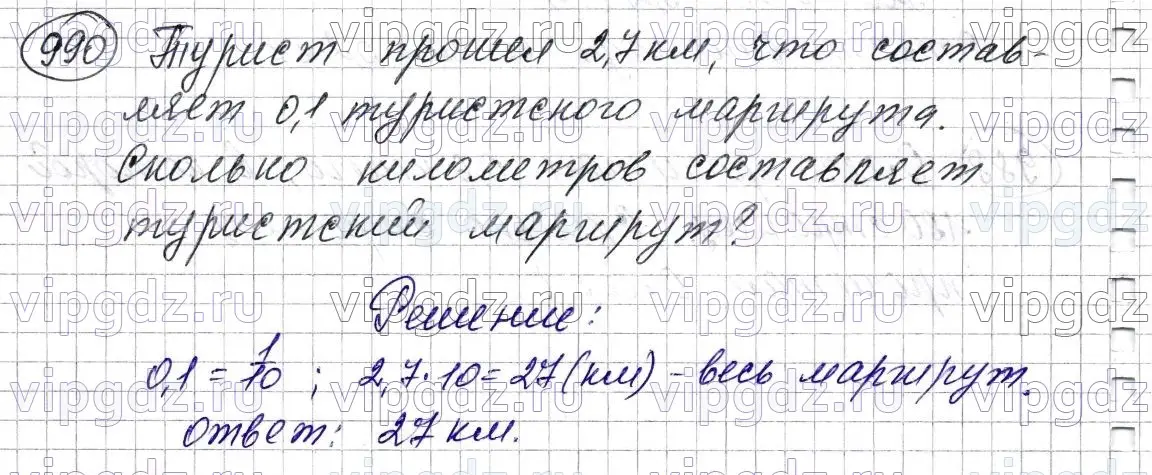 990 Турист прошел 2,7 км, что состав-
ляет 0,1 туристского маршрута.
Сколько километров составляет
туристский маршрут?
Решение:
0,1 = 1/10 ; 2,7 · 10 = 27 (км) - весь маршрут.
ответ: 27 км.
vipgdz.ru